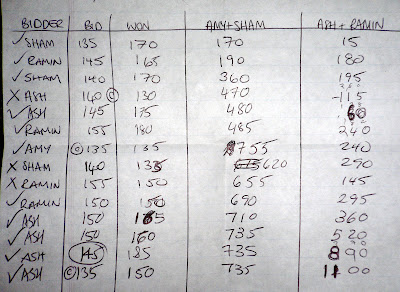 BIDDER BID WON AMY+SHAM ASH+RAMIN
✓ SHAM 135 170 170 15
✓ RAMIN 145 165 190 180
✓ SHAM 140 170 360 195
X ASH 140 © 130 470 -115
✓ ASH 145 175 480 60
✓ RAMIN 155 180 485 240
✓ AMY © 135 135 755 240
X SHAM 140 135 620 290
X RAMIN 155 150 655 145
✓ RAMIN 150 150 690 295
✓ ASH 150 165 710 360
✓ ASH 150 160 735 520
✓ ASH 145 185 735 890
✓ ASH © 135 150 735 1100